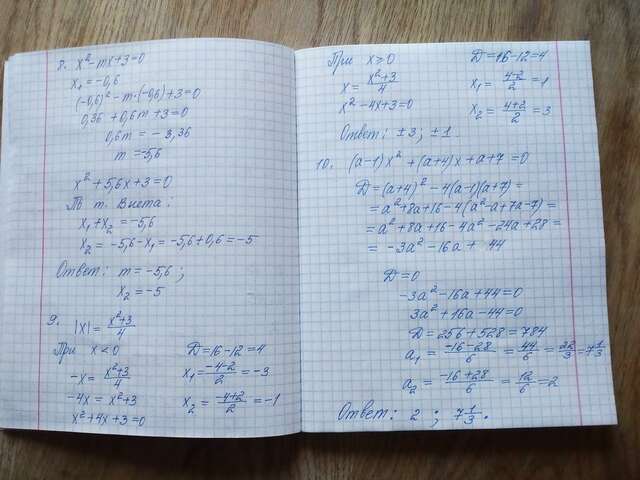 8. x² - mx + 3 = 0
x₁ = -0,6
(-0,6)² - m·(-0,6) + 3 = 0
0,36 + 0,6m + 3 = 0
0,6m = -3,36
m = -5,6
x² + 5,6x + 3 = 0
По т. Виета:
x₁ + x₂ = -5,6
x₂ = -5,6 - x₁ = -5,6 + 0,6 = -5
Ответ: m = -5,6;
x₂ = -5
9. |x| = (x²+3)/4
При x < 0
-x = (x²+3)/4
-4x = x² + 3
x² + 4x + 3 = 0
D = 16 - 12 = 4
x₁ = (-4-2)/2 = -3
x₂ = (-4+2)/2 = -1
При x ≥ 0
x = (x²+3)/4
x² - 4x + 3 = 0
D = 16 - 12 = 4
x₁ = (4-2)/2 = 1
x₂ = (4+2)/2 = 3
Ответ: ±3; ±1.
10. (a-1)x² + (a+4)x + a + 7 = 0
D = (a+4)² - 4(a-1)(a+7) =
= a² + 8a + 16 - 4(a² - a + 7a - 7) =
= a² + 8a + 16 - 4a² - 24a + 28 =
= -3a² - 16a + 44
D = 0
-3a² - 16a + 44 = 0
3a² + 16a - 44 = 0
D = 256 + 528 = 784
a₁ = (-16-28)/6 = 44/6 = 22/3 = 7 1/3
a₂ = (-16+28)/6 = 12/6 = 2
Ответ: 2; 7 1/3.